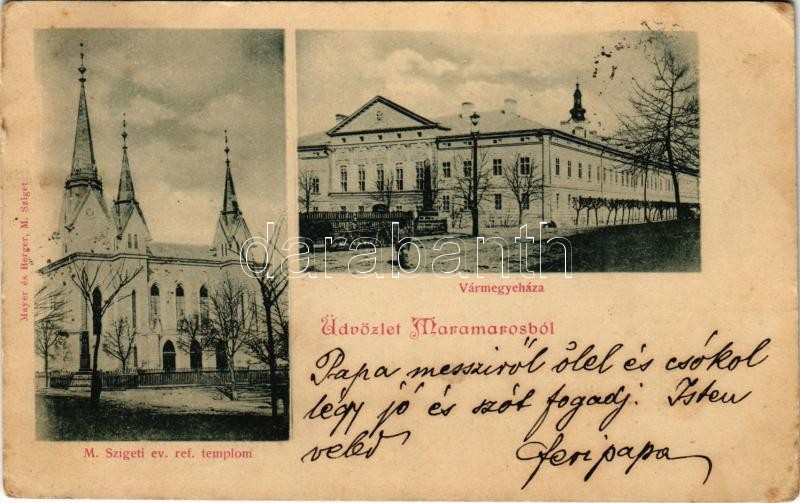 Mayer és Berger, M. Sziget
darabanth
Vármegyeháza
Üdvözlet Maramarosból
M. Szigeti ev. ref. templom
Papa messziről ölel és csókol
légy jó és szót fogadj. Isten
veled feripapa